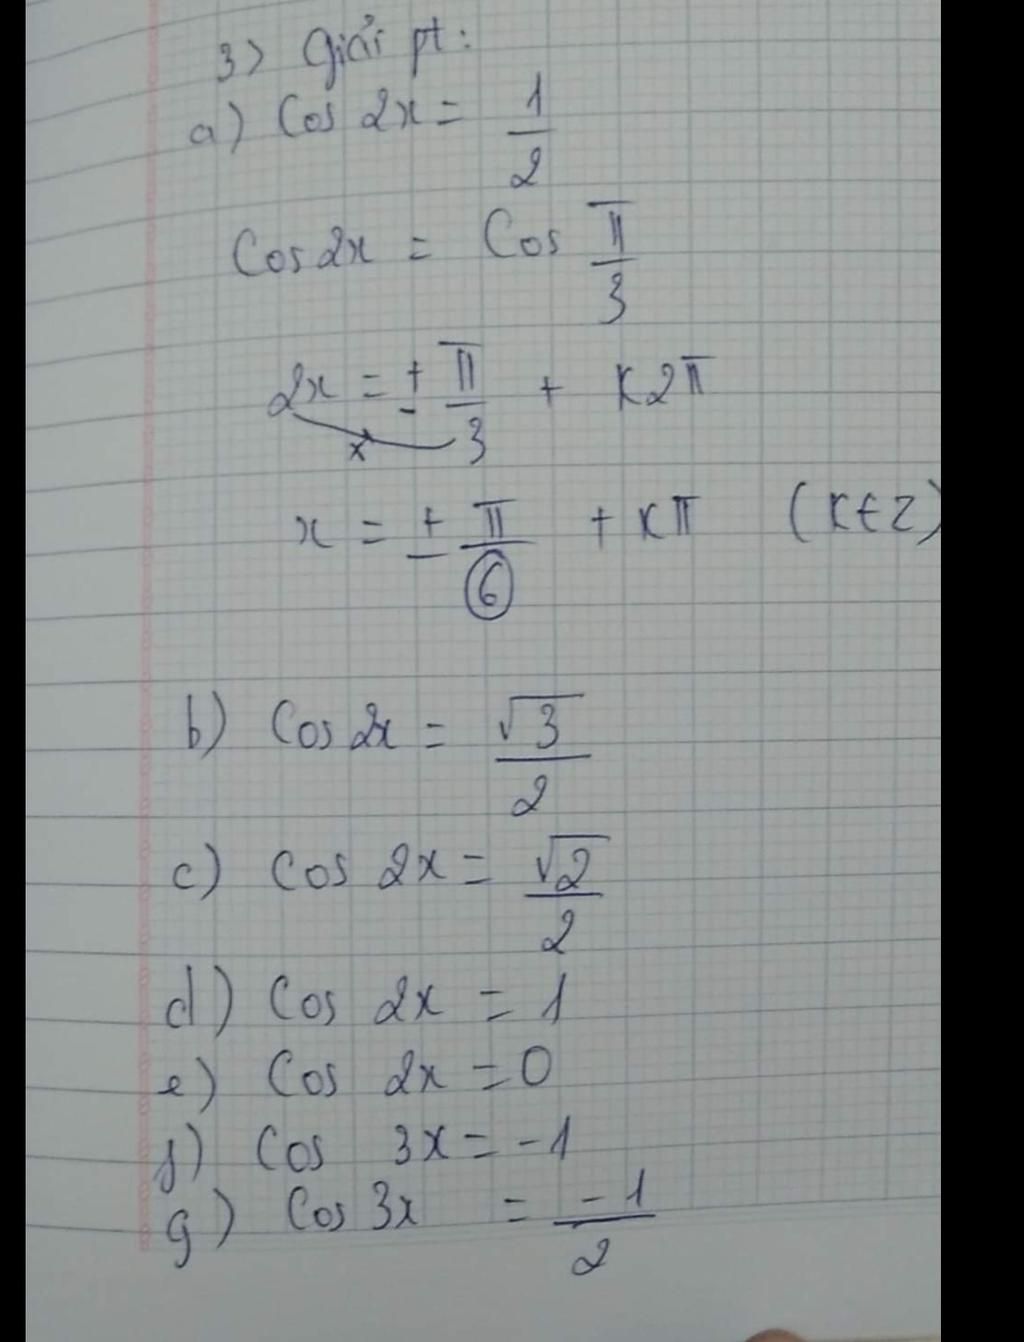 3) Giải pt:
a) Cos 2x = 1/2
Cos 2x = Cos π/3
2x = ± π/3 + K2π
x
x = ± π/6 + Kπ (K∈Z)
b) Cos 2x = √3/2
c) Cos 2x = √2/2
d) Cos 2x = 1
e) Cos 2x = 0
f) Cos 3x = -1
g) Cos 3x = -1/2